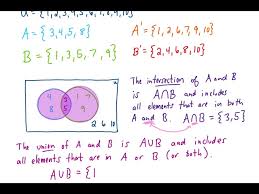 A = {3,4,5,8}
A' = {1,2,6,7,9,10}
B = {1,3,5,7,9}
B' = {2,4,6,8,10}
4 3 1 7
8 5 9
2 6 10
The intersection of A and B
is A∩B and includes
all elements that are in both
A and B. A∩B = {3,5}
The union of A and B is A∪B and includes
all elements that are in A or B (or both).
A∪B = {1